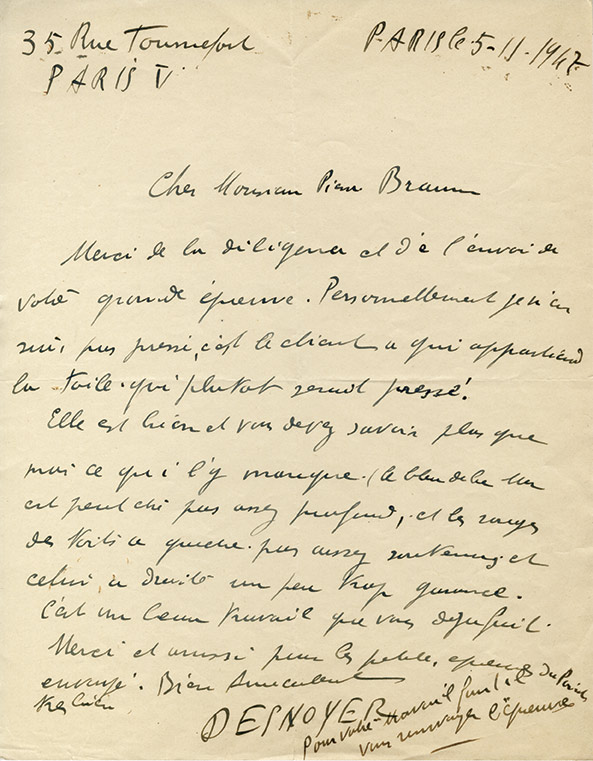 35 Rue Tournefort
PARIS V
PARIS le 5-11-1947
Cher Monsieur Pierre Braun
Merci de la diligence et de l'envoi de
votre grande épreuve. Personnellement je n'en
suis pas pressé, c'est le client a qui appartient
la toile. qui plutot serait pressé!
Elle est bien et vous devez savoir plus que
moi ce qu'i l'y manque. (le bleu de la mer
est peut etre pas assez profond, et les rouges
des toits a gauche. pas assez soutenus, et
celui a droite un peu trop garance.
C'est un beau travail que vous
Merci et aussi pour les petites épreuves du
envoyé. Bien Amicalement
DESNOYER
Pour votre travail faut-il
vous renvoyer l'épreuve